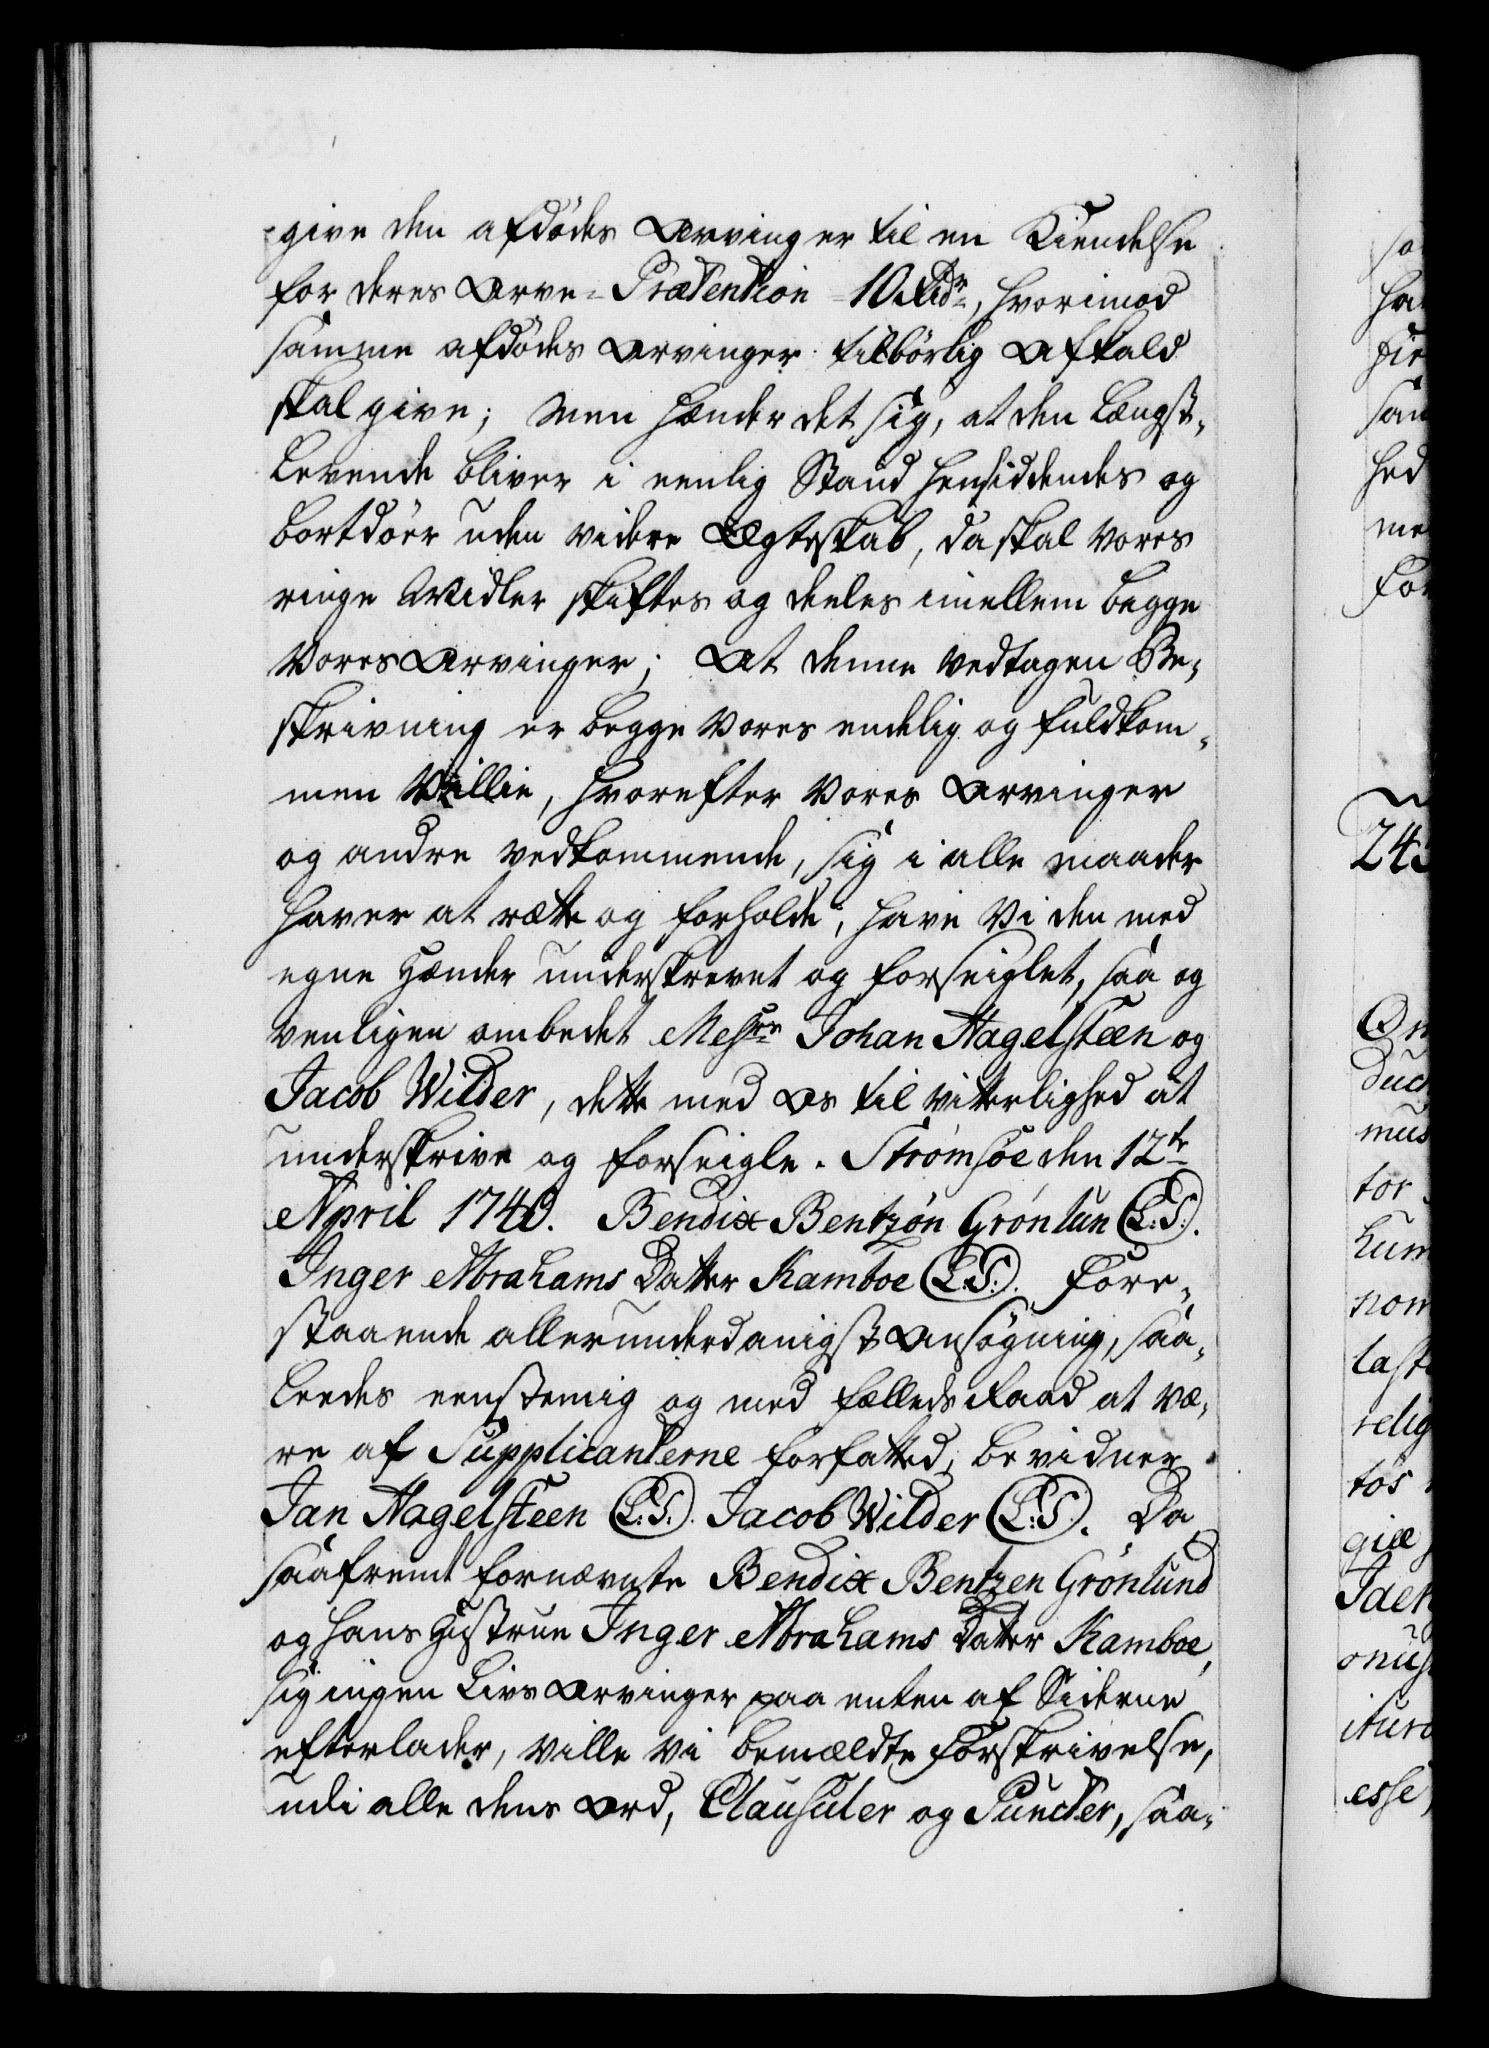 give den afdödes Arvinger til en Kiendelse
for deres Arve-Prætention 10 Rdr, hvorimod
samme afdödes Arvinger tilbörlig Afkald
skal give; Men hænder det sig, at den Længst-
Levende bliver i eenlig Stand hensiddendes og
bortdöer uden videre Ægteskab, da skal Vores
ringe Midler skiftes og deeles imellem begge
Vores Arvinger; At denne vedtagen Be-
skrivning er begge Vores endelig og fuldkom-
men Villie, hvorefter Vores Arvinger
og andre vedkommende, sig i alle maader
haver at rætte og forholde, have Vi den med
egne Hænder underskrevet og forseiglet, saa og
venligen ombedet Messrs Johan Hagelsteen og
Jacob Wilder, dette med Os til vitterlighed at
underskrive og forseigle. Strömsöe den 12te
April 1740. Bendix Bentzön Grönlun (L.S.).
Inger Abrahams Datter Kamboe (L.S.). Fore-
staaende allerunderdanigst Ansögning, saa-
leedes eenstemig og med fælleds Raad at væ-
re af Supplicanterne forfatted, bevidner
Jan Hagelsteen (L.S.). Jacob Wilder (L.S.). Da
saafremt fornævnte Bendix Bentzen Grönlund
og hans Hustrue Inger Abrahams Datter Kamboe,
sig ingen Livs Arvinger paa enten af Siderne
efterlader, ville Vi bemældte Forskrivelse,
udi alle dens Ord, Clausuler og Puncter, saa-